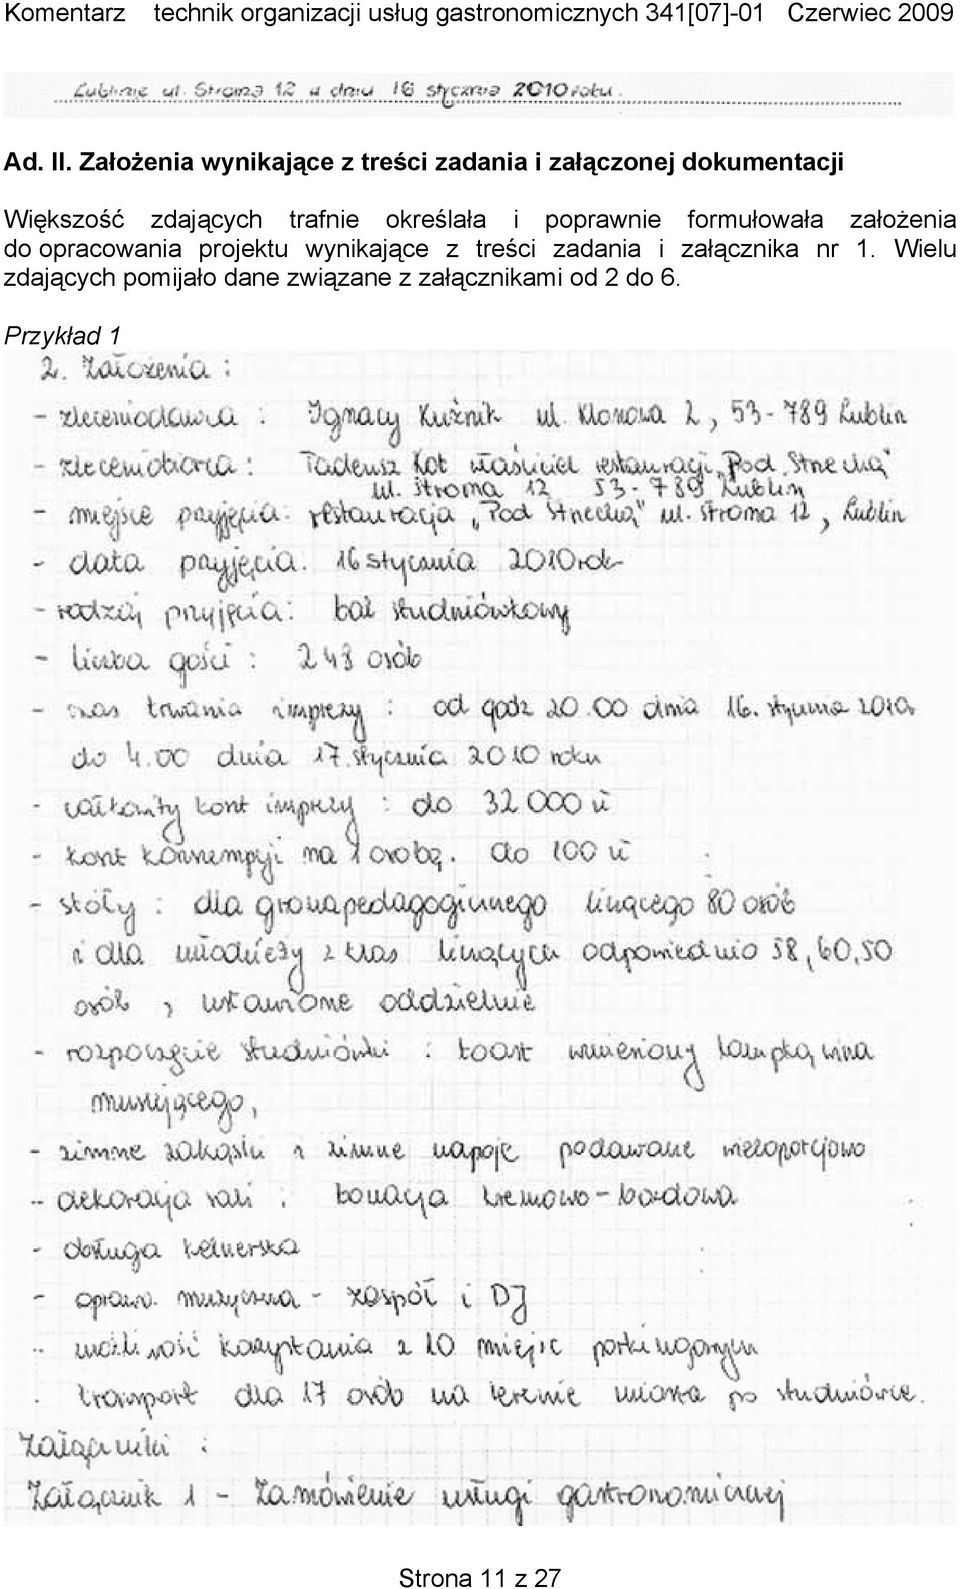 Komentarz technik organizacji usług gastronomicznych 341[07]-01 Czerwiec 2009
Lublinie ul. Stroma 12 w dniu 16 stycznia 2010 roku.
Ad. II. Założenia wynikające z treści zadania i załączonej dokumentacji
Większość zdających trafnie określała i poprawnie formułowała założenia
do opracowania projektu wynikające z treści zadania i załącznika nr 1. Wielu
zdających pomijało dane związane z załącznikami od 2 do 6.
Przykład 1
2. Założenia :
- zleceniodawca : Ignacy Kuźnik ul. Klonowa 2, 53-789 Lublin
- zleceniobiorca : Tadeusz Kot właściciel restauracji „Pod Strzechą"
ul. Stroma 12 53-789 Lublin
- miejsce przyjęcia: restauracja „Pod Strzechą" ul. Stroma 12, Lublin
- data przyjęcia: 16 stycznia 2010 rok
- rodzaj przyjęcia: bal studniówkowy
- liczba gości : 248 osób
- czas trwania imprezy : od godz 20.00 dnia 16. stycznia 2010r
do 4.00 dnia 17. stycznia 2010 roku
- całkowity koszt imprezy : do 32 000 zł
- koszt konsumpcji na 1 osobę. do 100 zł
- stoły : dla grona pedagogicznego liczącego 80 osób
i dla młodzieży z klas liczących odpowiednio 58, 60, 50
osób, ustawione oddzielnie
- rozpoczęcie studniówki : toast wzniesiony lampką wina
musującego,
- zimne zakąski i zimne napoje podawane wieloporcjowo
- dekoracja sali : tonacja kremowo - bordowa
- obsługa kelnerska
- opraw. muzyczna - zespół i DJ
- możliwość korzystania z 10 miejsc parkingowym
- transport dla 17 osób na terenie miasta po studniówce.
Załączniki :
Załącznik 1 - Zamówienie usługi gastronomicznej
Strona 11 z 27